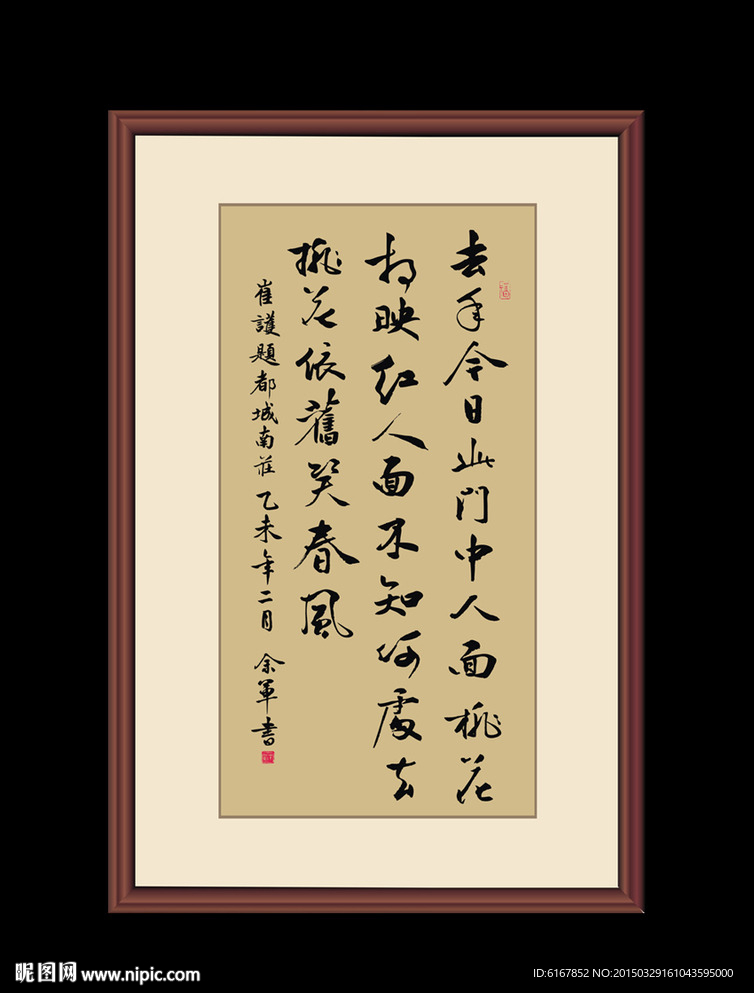 去年今日此門中人面桃花
相映紅人面不知何處去
桃花依舊笑春風
崔護題都城南莊 乙未年二月 余軍書
昵图网 www.nipic.com
ID:6167852 NO:20150329161043595000